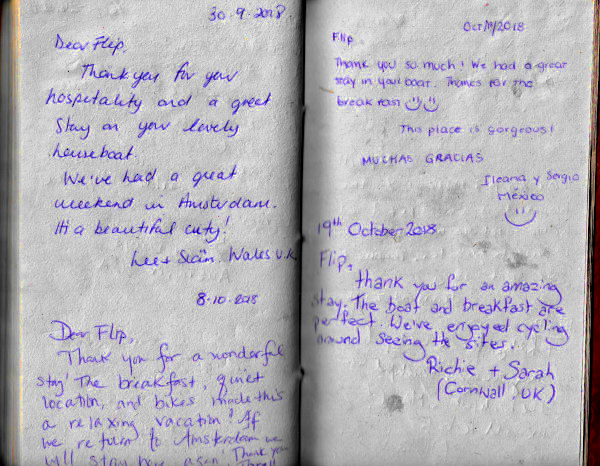 30-9-2018.
Dear Flip,
Thank you for your
hospetality and a great
stay on your lovely
houseboat.
We've had a great
weekend in Amsterdam.
It's a beautiful city!
Lee + Siân. Wales U.K
8-10-2018
Dear Flip,
Thank you for a wonderful
stay! The breakfast, quiet
location, and bikes made this
a relaxing vacation! If
we return to Amsterdam we
will stay here again! Thank you
Oct/11/2018
Flip
Thank you so much! We had a great
stay in your boat. Thanks for the
breakfast
This place is gorgeous!
MUCHAS GRACIAS
Ileana y Sergio
México
19th October 2018
Flip,
Thank you for an amazing
stay. The boat and breakfast are
perfect. We've enjoyed cycling
around seeing the sites.
Richie + Sarah
(Cornwall, UK)